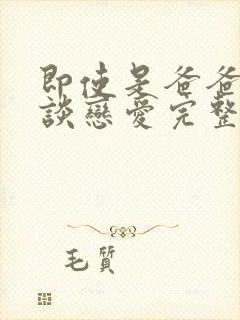 即使是爸爸
談戀愛完整
毛質